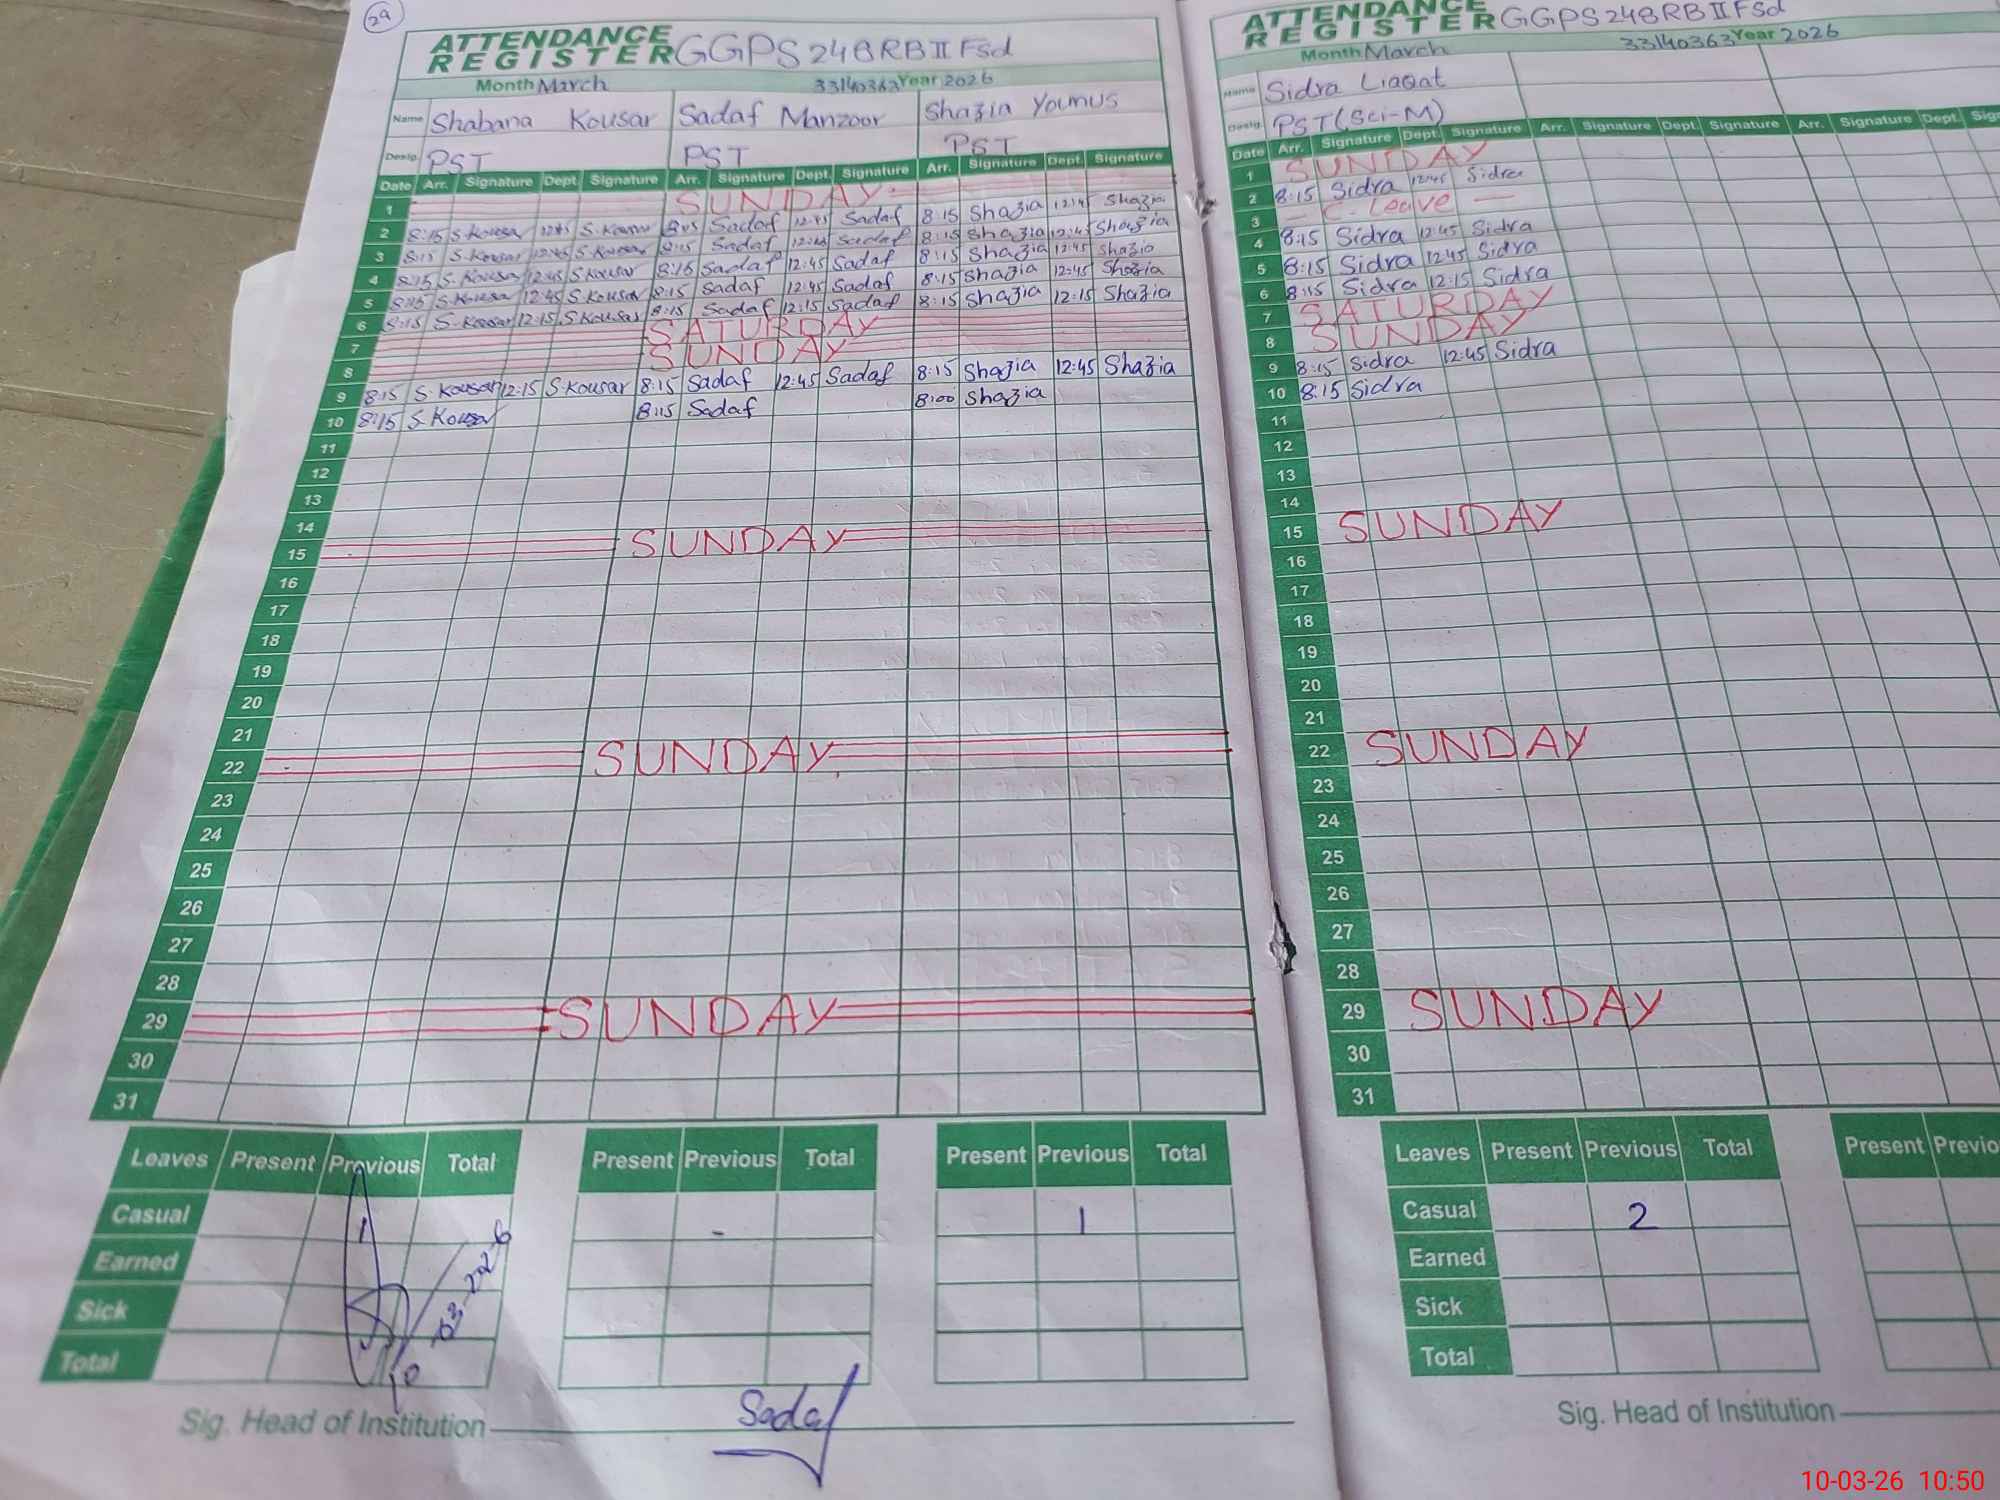 29
ATTENDANCE
REGISTER GGPS 248 RB II Fsd
Month March 33140363 Year 2026
Name Shabana Kousar Sadaf Manzoor Shazia Younus
Desig. PST PST PST
Date Arr. Signature Dept. Signature Arr. Signature Dept. Signature Arr. Signature Dept. Signature
1 SUNDAY
2 8:15 S.Kousar 12:45 S.Kousar 8:15 Sadaf 12:45 Sadaf 8:15 Shazia 12:45 Shazia
3 8:15 S.Kousar 12:45 S.Kousar 8:15 Sadaf 12:45 Sadaf 8:15 Shazia 12:45 Shazia
4 8:15 S.Kousar 12:45 S.Kousar 8:15 Sadaf 12:45 Sadaf 8:15 Shazia 12:45 Shazia
5 8:15 S.Kousar 12:45 S.Kousar 8:15 Sadaf 12:45 Sadaf 8:15 Shazia 12:45 Shazia
6 8:15 S.Kousar 12:15 S.Kousar 8:15 Sadaf 12:15 Sadaf 8:15 Shazia 12:15 Shazia
7 SATURDAY
8 SUNDAY
9 8:15 S.Kousar 12:15 S.Kousar 8:15 Sadaf 12:45 Sadaf 8:15 Shazia 12:45 Shazia
10 8:15 S.Kousar 8:15 Sadaf 8:00 Shazia
11
12
13
14
15 SUNDAY
16
17
18
19
20
21
22 SUNDAY
23
24
25
26
27
28
29 SUNDAY
30
31
Leaves Present Previous Total Present Previous Total Present Previous Total
Casual 1 - 1
Earned
Sick
Total
10-03-2026
Sig. Head of Institution Sadaf
ATTENDANCE
REGISTER GGPS 248 RB II Fsd
Month March 33140363 Year 2026
Name Sidra Liaqat
Desig. PST (Sci-M)
Date Arr. Signature Dept. Signature Arr. Signature Dept. Signature Arr. Signature Dept. Sig
1 SUNDAY
2 8:15 Sidra 12:45 Sidra
3 - C. Leave -
4 8:15 Sidra 12:45 Sidra
5 8:15 Sidra 12:45 Sidra
6 8:15 Sidra 12:15 Sidra
7 SATURDAY
8 SUNDAY
9 8:15 Sidra 12:45 Sidra
10 8:15 Sidra
11
12
13
14
15 SUNDAY
16
17
18
19
20
21
22 SUNDAY
23
24
25
26
27
28
29 SUNDAY
30
31
Leaves Present Previous Total Present Previo
Casual 2
Earned
Sick
Total
Sig. Head of Institution
10-03-26 10:50